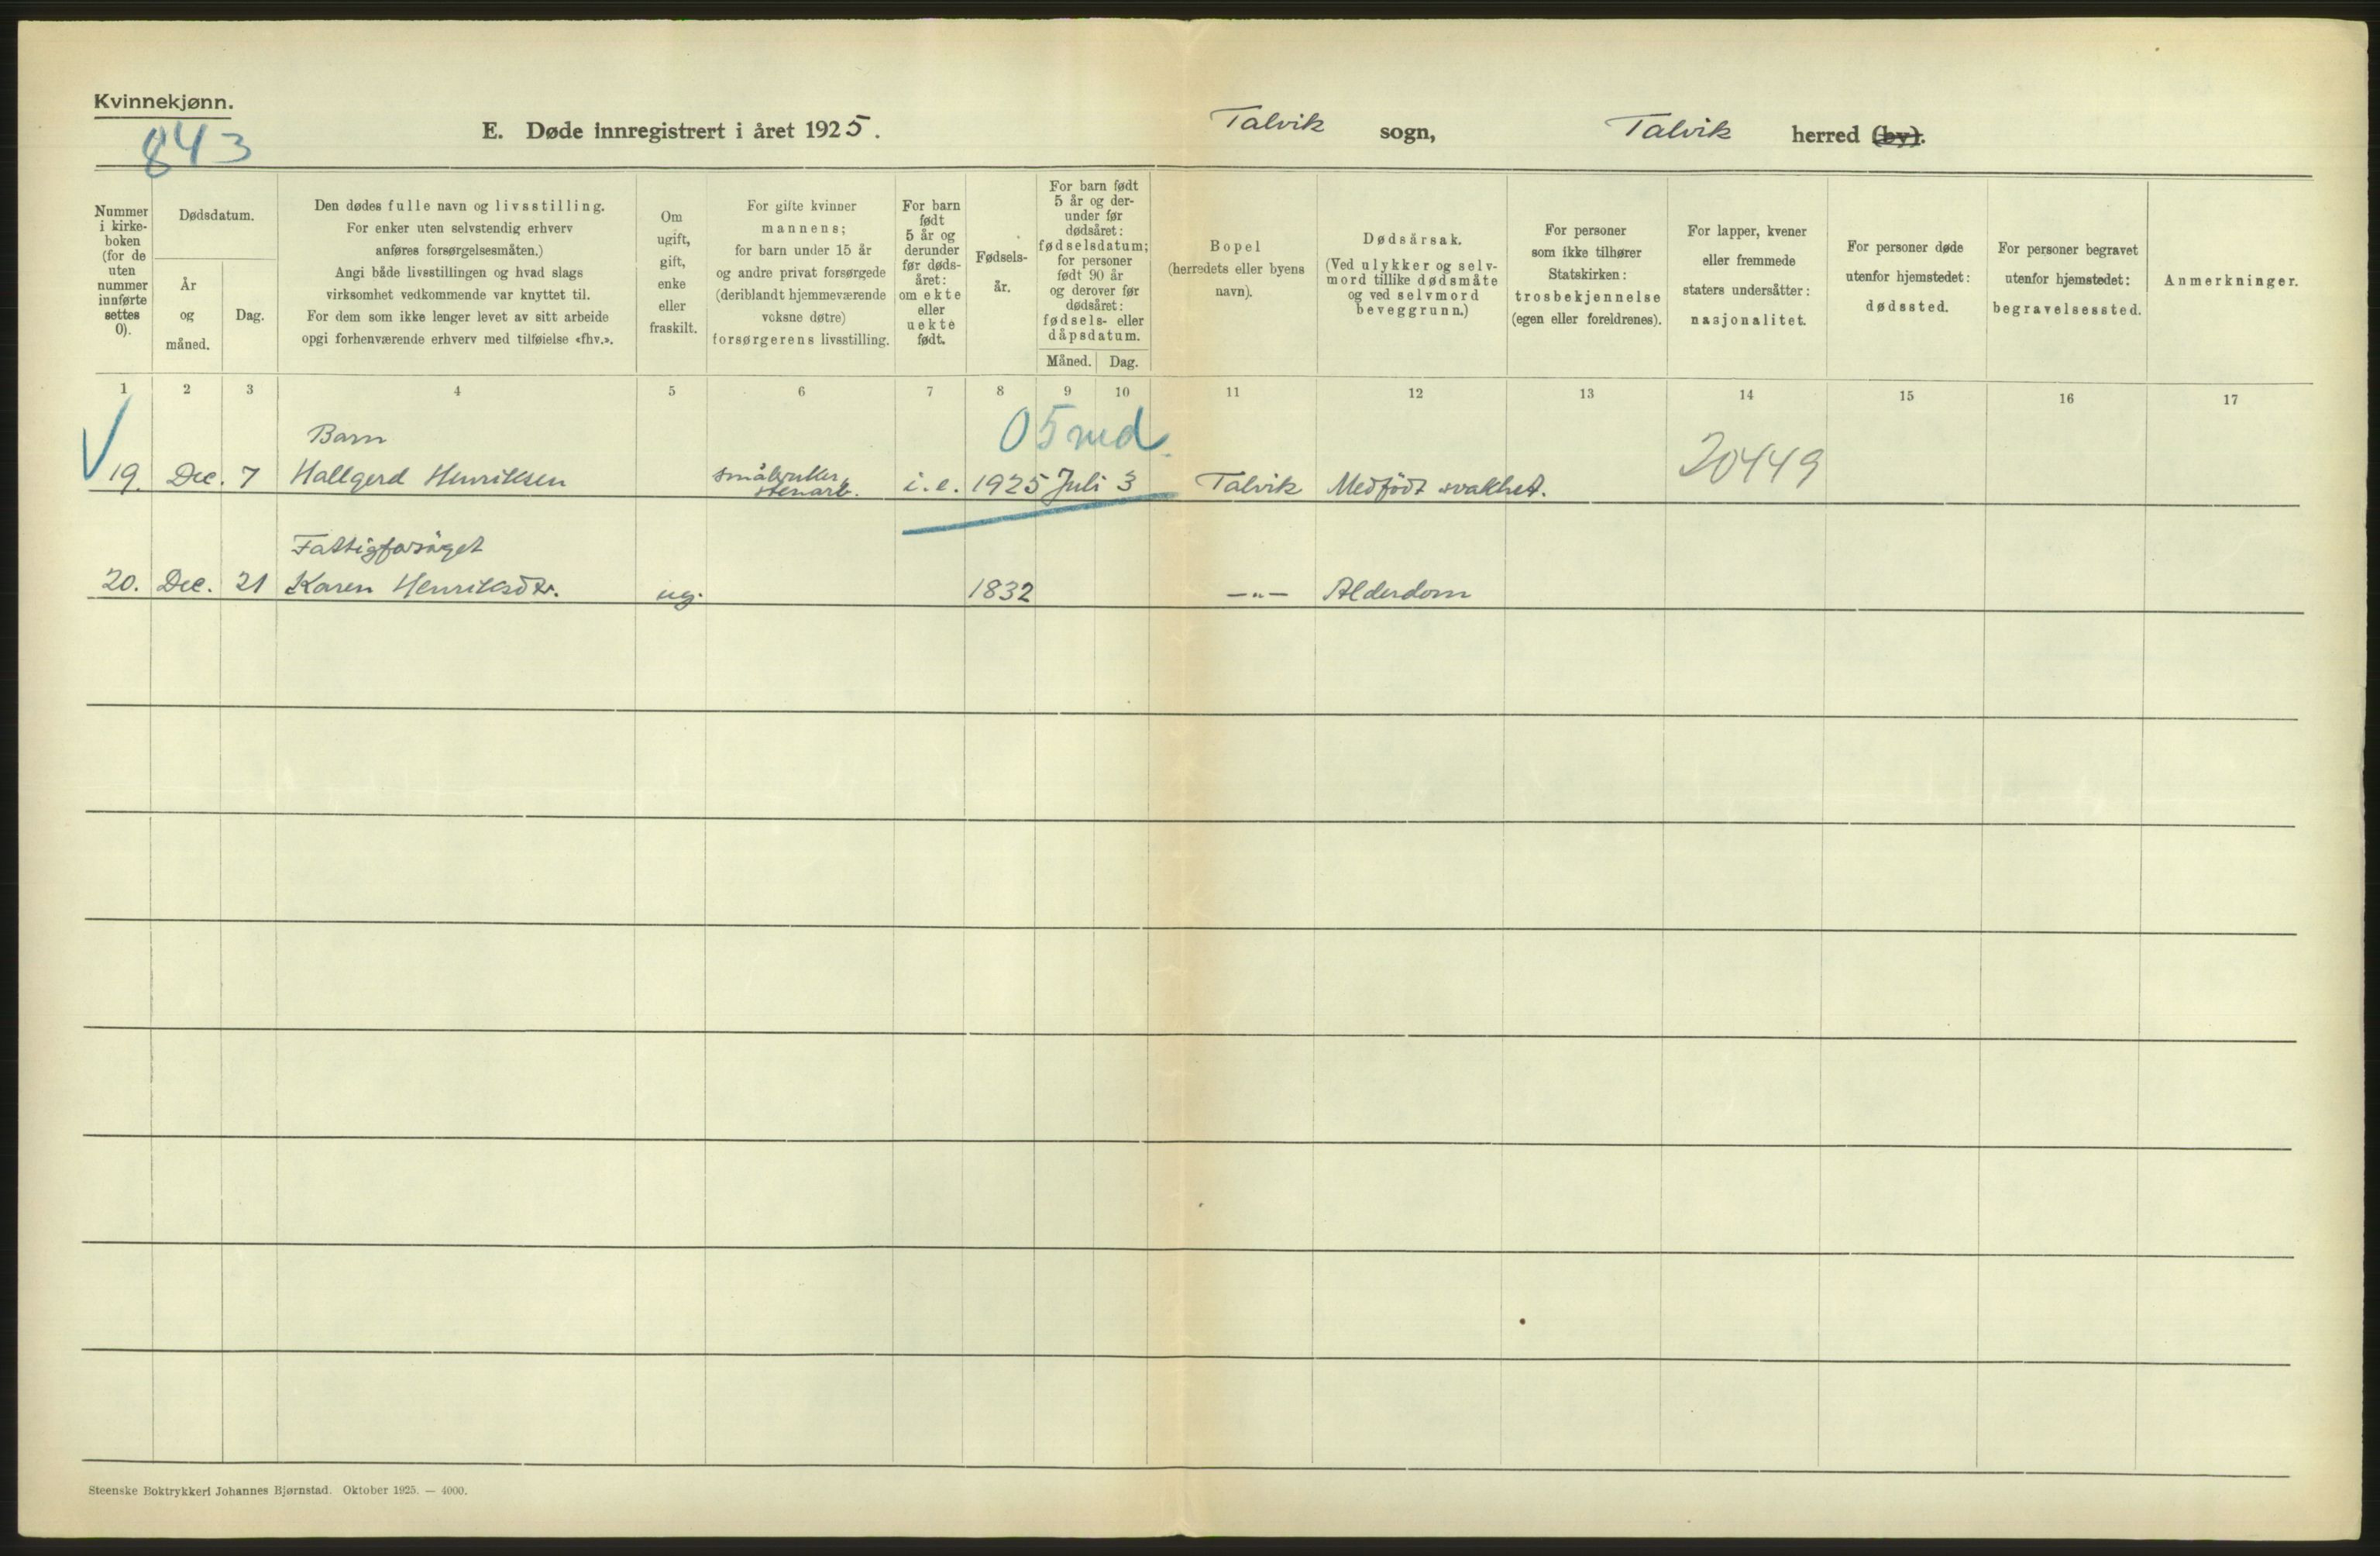 Kvinnekjønn.
843
E. Døde innregistrert i året 1925.
Talvik sogn, Talvik herred (by).
Nummer i kirke-boken (for de uten nummer innførte settes 0).
Dødsdatum.
År og måned.
Dag.
Den dødes fulle navn og livsstilling.
For enker uten selvstendig erhverv
anføres forsørgelsesmåten.)
Angi både livsstillingen og hvad slags
virksomhet vedkommende var knyttet til.
For dem som ikke lenger levet av sitt arbeide
opgi forhenværende erhverv med tilføielse «fhv.».
Om
ugift,
gift,
enke
eller
fraskilt.
For gifte kvinner
mannens;
for barn under 15 år
og andre privat forsørgede
(deriblandt hjemmeværende
voksne døtre)
forsørgerens livsstilling.
For barn
født
5 år og
derunder
før døds-
året:
om ekte
eller
uekte
født.
Fødsels-
år.
For barn født
5 år og der-
under før
dødsåret:
fødselsdatum;
for personer
født 90 år
og derover før
dødsåret:
fødsels- eller
dåpsdatum.
Måned. Dag.
Bopel
(herredets eller byens
navn).
Dødsårsak.
(Ved ulykker og selv-
mord tillike dødsmåte
og ved selvmord
beveggrunn.)
For personer
som ikke tilhører
Statskirken:
trosbekjennelse
(egen eller foreldrenes).
For lapper, kvener
eller fremmede
staters undersåtter:
nasjonalitet.
For personer døde
utenfor hjemstedet:
dødssted.
For personer begravet
utenfor hjemstedet:
begravelsessted.
Anmerkninger.
1 2 3 4 5 6 7 8 9 10 11 12 13 14 15 16 17
05 md.
Barn
20449
19. Dec. 7 Hallgerd Henriksen småbruker, stenarb. i.e. 1925 Juli 3 Talvik Medfödt svakhet.
Fattigforsöget
20. Dec. 21 Karen Henriksdtr. ug. 1832 —"— Alderdom
Steenske Boktrykkeri Johannes Bjørnstad. Oktober 1925. — 4000.